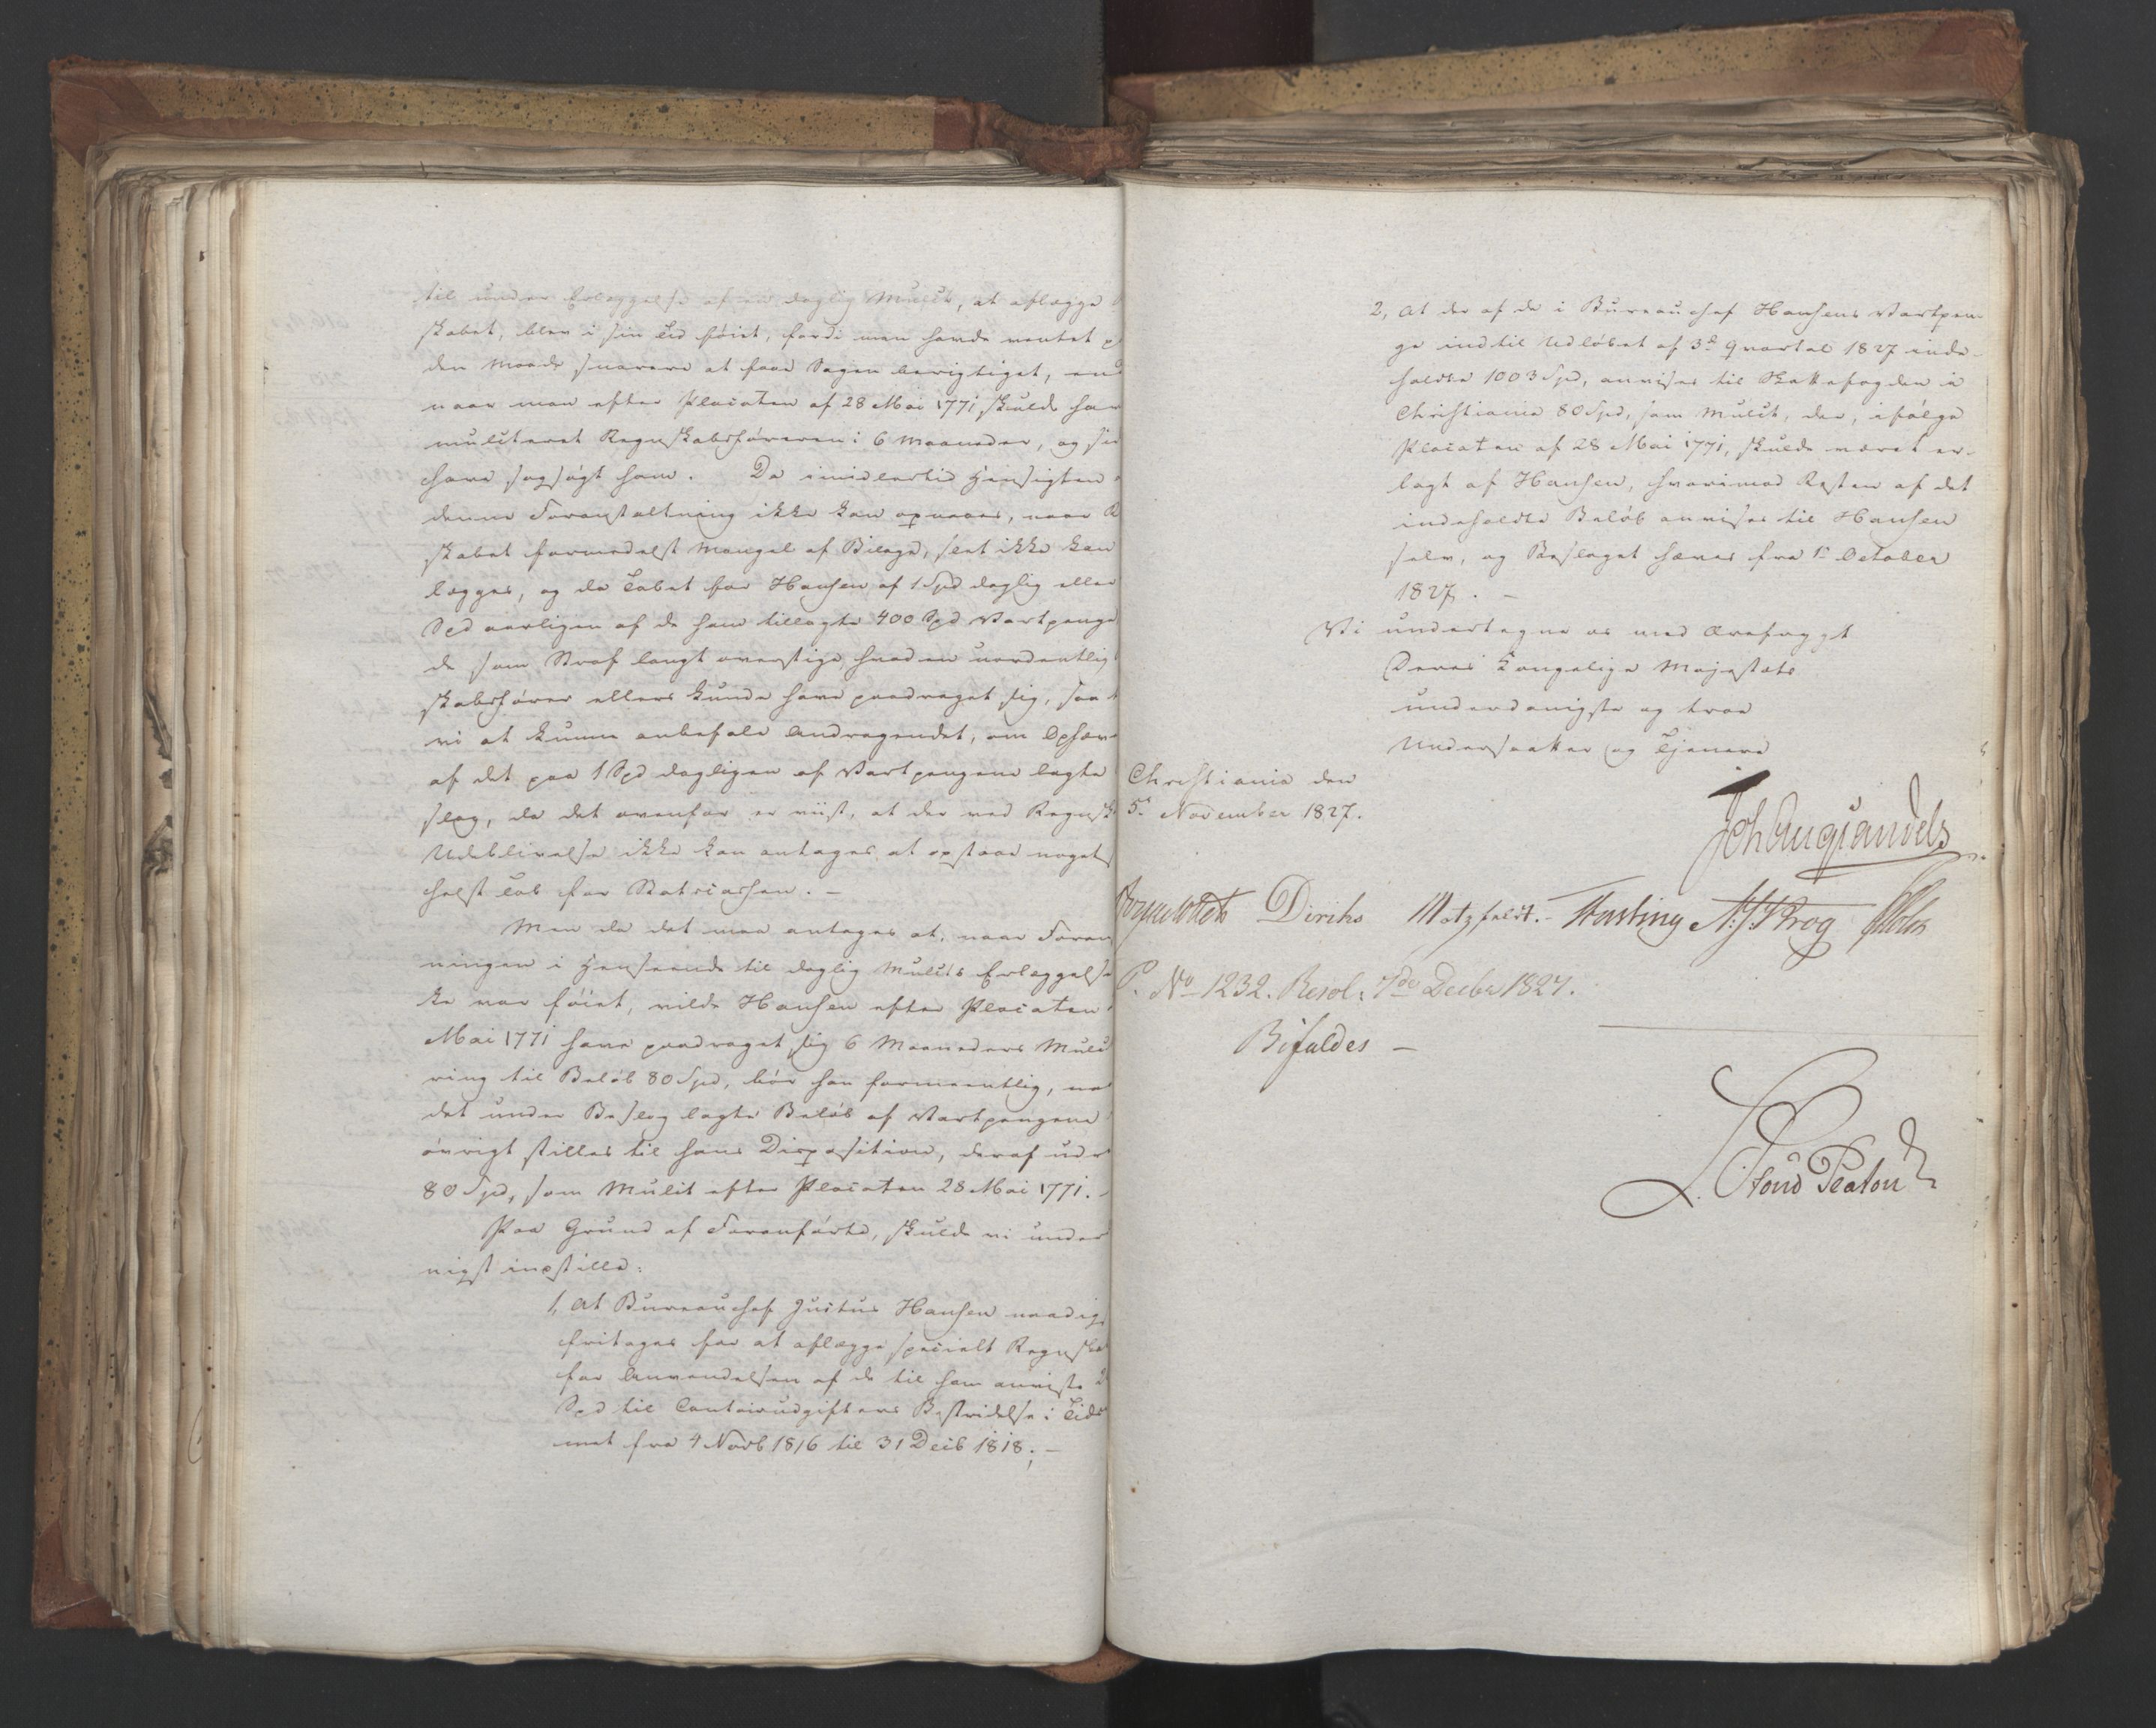 til under Erlæggelse af en daglig Mulct, at aflægge
skabet, blev i sin Tid føiet, fordi man havde ventet p
den Maade snarere at faae Sagen berigtiget, end
naar man efter Placaten af 28 Mai 1771, skulde hav
mulcteret Regnskabsføreren i 6 Maaneder, og sid
have sagsøgt ham. Da imidlertid Hensigten
denne Foranstaltning ikke kan opnaaes, naar R
skabet formedelst Mangel af Bilage, slet ikke kan
lægges, og da Tabet for Hansen af 1 Spd daglig eller
Spd aarligen af de ham tillagte 400 Spd Vartpenge
de som Straf langt overstige, hvad en uordentlig
skabsfører ellers kunde have paadraget sig, saa t
vi at kunne anbefale Andragendet, om Ophæv
af det paa 1 Spd dagligen af Vartpengene lagte
slag, da det ovenfor er viist, at der ved Regnsk
Udeblivelse ikke kan antages at opstaae noget
helst Tab for Statscassen. –
Men da det maa antages at, naar Foran
ningen i Henseende til daglig Mulcts Erlæggelse
ke var føiet, vilde Hansen efter Placaten
Mai 1771 have paadraget sig 6 Maaneders Mulc
ring til Beløb 80 Spd, bør han formeentlig, na
det under Beslag lagte Beløb af Vartpengene
øvrigt stilles til hans Disposition, deraf udr
80 Spd, som Mulct efter Placaten 28 Mai 1771. –
Paa Grund af Foranførte, skulde vi under
nigst indstille:
1, At Bureauchef Justus Hansen naadig
fritages for at aflægge specielt Regnskab
for Anvendelsen af de til ham anviste 2
Spd til Contoirudgifters Bestridelse i Tids
met fra 4 Novb 1816 til 31 Decb 1818; –
2, At der af de i Bureauchef Hansens Vartpen-
ge indtil Udløbet af 3d Qvartal 1827 inde-
holdte 1003 Spd, anvises til Skattefogden i
Christiania 80 Spd, som Mulct, der, ifølge
Placaten af 28 Mai 1771, skulde været er-
lagt af Hansen, hvorimod Resten af det
indeholdte Beløb anvises til Hansen
selv, og Beslaget hæves fra 1ste October
1827. –
Vi undertegne os med Ærefrygt
Deres Kongelige Majestæts
underdanigste og troe
Undersaatter og Tjenere
Christiania den
5te November 1827.
Joh Aug Sandels
Sommerfeldt Diriks Motzfeldt. Fasting A. J. Krog Holst
P. No 1232. Resol: 7de Decbr 1827.
Bifaldes –